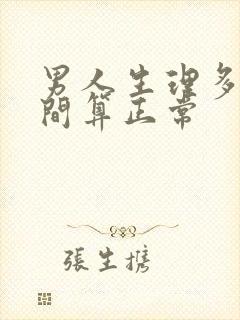 男人生理多
間算正常
張生携